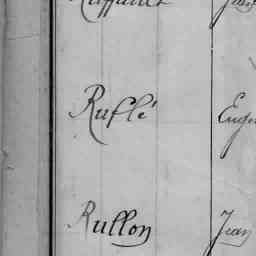 Ruflé Eug
Rullon Jean